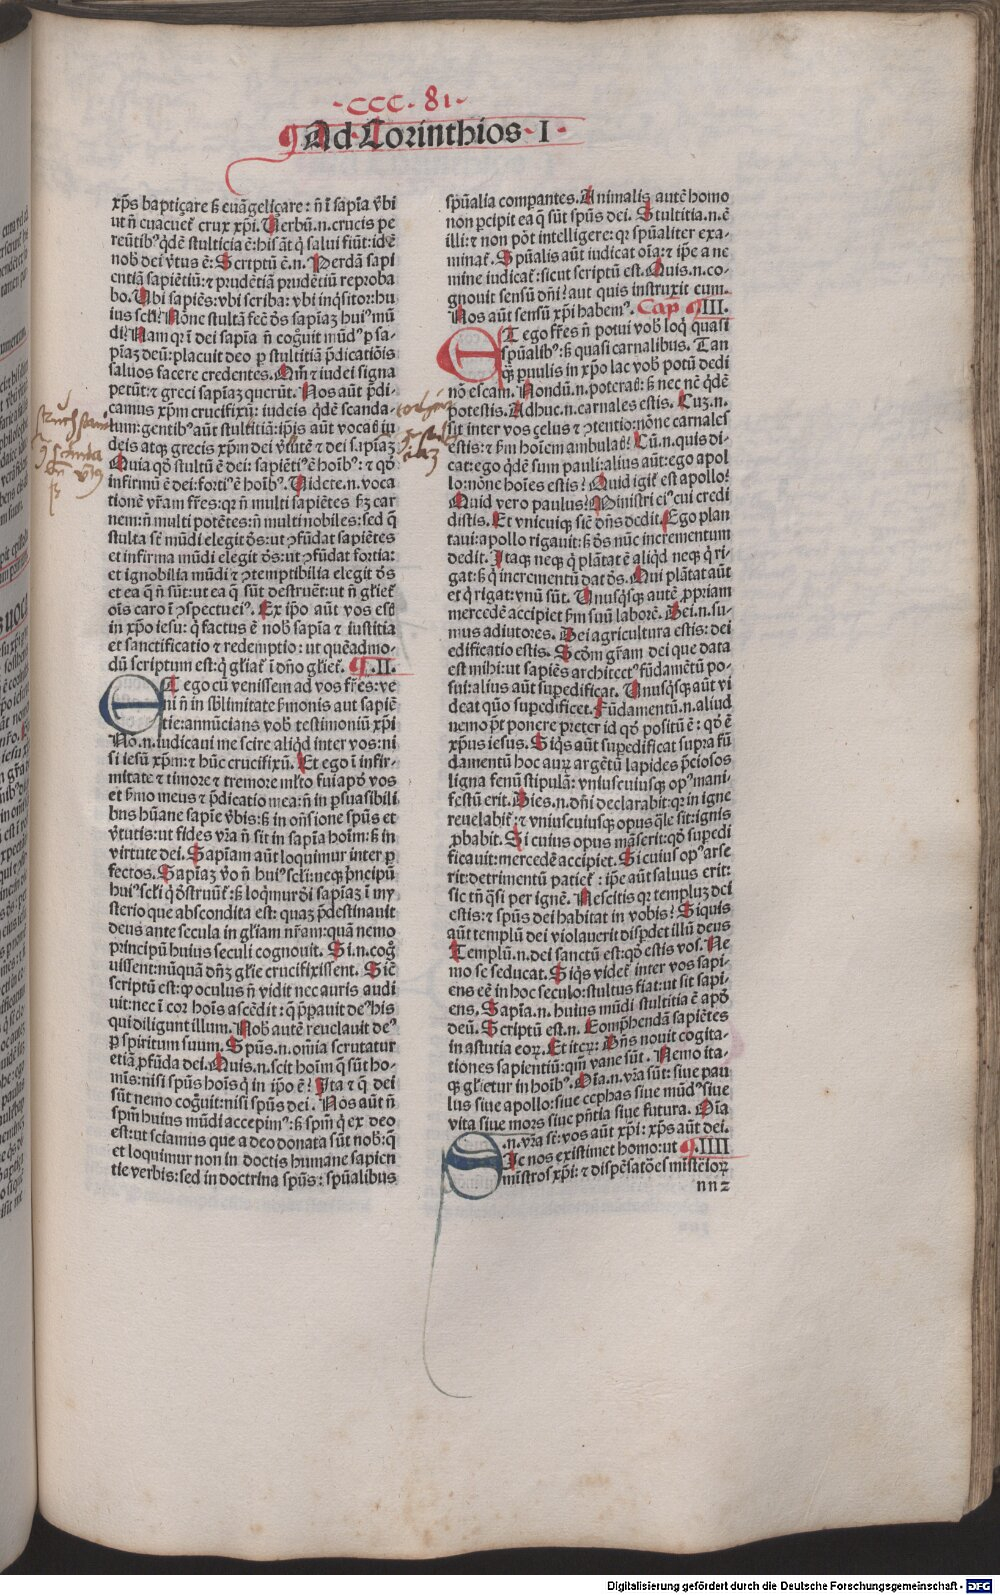 -CCC. 81-
Ad Corinthios. I.
xp̄s baptiçare sꝫ euāgeliçare: n̄ ī sapīa v̄bi
ut n̄ euacuet̄ crux xp̄i. Uerbū.n.crucis pe
reūtibꝰ q̄dē stulticia ē: his āt q̄ salui fiūt: id ē
nob̄ dei v̄tus ē: Scriptū ē.n. Perdā sapi
entiā sapiētiū: ⁊ prudētiā prudētiū reproba
bo. Ubi sapiēs: vbi scriba: vbi inq̄sitor: hu
ius scl̄i? Nōne stultā fec̄ ds̄ sapīaꝫ huiꝰ mū
di? Nam qꝛ ī dei sapīa n̄ coḡuit mūdꝰ p sa-
pīaꝫ deū: placuit deo p stultitiā p̄dicatiōis
saluos facere credentes. Qm̄ ⁊ iudei signa
petūt: ⁊ greci sapīaꝫ querūt. Nos aūt p̄di-
camus xp̄m crucifixū: iudeis q̄dē scanda-
lum: gentibꝰ aūt stultitiā: ip̄is aūt vocat̄ iu
deis atqꝫ grecis xp̄m dei v̄tutē ⁊ dei sapīaꝫ
Quia qd̄ stultū ē dei: sapiētiꝰ ē hoībꝰ: ⁊ qd̄
infirmū ē dei: fortiꝰ ē hoībꝰ. Uidete.n.voca
tionē vr̄am fr̄es: qꝛ n̄ multi sapiētes scd̄ꝫ car
nem: n̄ multi potētes: n̄ multi nobiles: sed q̄
stulta st̄ mūdi elegit ds̄: ut ꝯfūdat sapiētes
et infirma mūdi elegit ds̄: ut ꝯfūdat fortia:
et ignobilia mūdi ⁊ ꝯtemptibilia elegit ds̄
et ea q̄ n̄ sūt: ut ea q̄ sūt destruēt: ut n̄ gl̄iet̄
oīs caro ī ꝯspectu eiꝰ. Ex ip̄o aūt vos estꝭ
in xp̄o iesu: q̄ factus ē nob̄ sapīa ⁊ iustitia
et sanctificatio ⁊ redemptio: ut quēadmo-
dū scriptum est: q̄ gl̄iat̄ ī dn̄o gl̄iet̄. ¶.II.
ET ego cū venissem ad vos fr̄es: ve
ni n̄ in sblimitate s̄monis aut sapiē
tie: annūcians vob̄ testimoniū xp̄i
No.n.iudicaui me scire aliqd̄ inter vos: ni
si iesū xp̄m: ⁊ hūc crucifixū. Et ego ī infir-
mitate ⁊ timore ⁊ tremore ml̄to fui apd̄ vos
et s̄mo meus ⁊ p̄dicatio mea: n̄ in p̄suasibili
bus hūane sapīe v̄bis: sꝫ in on̄sione spūs et
v̄tutis: ut fides vr̄a n̄ sit in sapīa hoīm: sꝫ in
virtute dei. Sapīam aūt loquimur inter p
fectos. Sapīaꝫ v̄o n̄ huiꝰ scl̄i: neqꝫ p̄ncipū
huiꝰ scl̄i q̄ dstruūt̄: sꝫ loq̄mur dei sapīaꝫ ī my
sterio que abscondita est: quaꝫ p̄destinauit
deus ante secula in gl̄iam nr̄am: quā nemo
principū huius seculi cognouit. Si.n.coḡ
uissent: nūquā dn̄ꝫ gl̄ie crucifixissent. Sic̄
scriptū est: ꝙ oculus n̄ vidit nec auris audi
uit: nec ī cor hoīs ascēdit: q̄ p̄parauit deꝰ his
qui diligunt illum. Nob̄ autē reuelauit deꝰ
p spiritum suum. Spūs.n.om̄ia scrutatur
etiā ꝓfūda dei. Quis.n.scit hoīm q̄ sūt ho-
mīs: nisi spūs hoīs q̄ in ip̄o ē? Ita ⁊ q̄ dei
sūt nemo coḡuit: nisi spūs dei. Nos aūt n̄
spm̄ huius mūdi accepimꝰ: sꝫ spm̄ q̄ ex deo
est: ut sciamus que a deo donata sūt nob̄: q̄
et loquimur non in doctis humane sapien
tie verbis: sed in doctrina spūs: spūalibus
spūalia compantes. Animalis autē homo
non pcipit ea q̄ sūt spūs dei. Stultitia.n.ē
illi: ⁊ non pōt intelligere: qꝛ spūaliter exa-
minat̄. Spūalis aūt iudicat oīa: ⁊ ip̄e a ne
mine iudicat̄: sicut scriptū est. Quis.n.co-
gnouit sensū dn̄i? aut quis instruxit eum.
Nos aūt sensū xp̄i habemꝰ. Cap̄ ¶III.
ET ego fr̄es n̄ potui vob̄ loq̄ quasi
spūalibꝰ: sꝫ quasi carnalibus. Tan
qꝫ puulis in xp̄o lac vob̄ potū dedi
nō escam. Nondū.n.poterat̄: sꝫ nec nc̄ q̄dē
potestis. Adhuc.n.carnales estis. Cuꝫ.n.
sit inter vos çelus ⁊ ꝯtentio: nōne carnales
estis: ⁊ scd̄m hoīem ambulat̄? Cū.n.quis di-
cat: ego q̄dē sum pauli: alius aūt: ego apol
lo: nōne hoīes estis? Quid igit̄ est apollo?
Quid vero paulus? Ministri eiꝰ cui credi
distis. Et vnicuiqꝫ sic̄ dn̄s dedit. Ego plan
taui: apollo rigauit: sꝫ ds̄ nūc incrementum
dedit. Itaqꝫ neqꝫ q̄ plātat ē aliqd̄ neqꝫ q̄ ri-
gat: sꝫ q̄ incrementū dat ds̄. Qui plātat aūt
et q̄ rigat: vnū sūt. Unusq̄sqꝫ autē ꝓpriam
mercedē accipiet scd̄m suū laborē. Dei.n.su-
mus adiutores. Dei agricultura estis: dei
edificatio estis. Scd̄m gr̄am dei que data
est mihi: ut sapiēs architectꝰ fūdamētū po-
sui: alius aūt supedificat. Unusq̄sqꝫ aūt vi
deat quō supedificet. Fūdamentū.n.aliud
nemo pt̄ ponere preter id qd̄ positū ē: qd̄ ē
xp̄us iesus. Siq̄s aūt supedificat supra fū
damentū hoc auꝝ argētū lapides p̄ciosos
ligna fenū stipulā: vniuscuiusqꝫ opꝰ mani-
festū erit. Dies.n.dn̄i declarabit: qꝛ in igne
reuelabit̄: ⁊ vniuscuiusqꝫ opus q̄le sit: ignis
ꝓbabit. Si cuius opus māserit: qd̄ supedi
ficauit: mercedē accipiet. Si cuius opꝰ arse
rit: detrimentū patiet̄: ip̄e aūt saluus erit:
sic tn̄ q̄si per ignē. Nescitis qꝛ templuꝫ dei
estis: ⁊ spūs dei habitat in vobis? Siquis
aūt templū dei violauerit disp̄det illū deus
Templū.n.dei sanctū est: qd̄ estis vos. Ne
mo se seducat. Siq̄s videt̄ inter vos sapi-
ens eē in hoc seculo: stultus fiat: ut sit sapi-
ens. Sapīa.n.huius mūdi stultitia ē apd̄
deū. Scriptū est.n. Comp̄hendā sapiētes
in astutia eoꝝ. Et iteꝝ: Dn̄s nouit cogita-
tiones sapientiū: qm̄ vane sūt. Nemo ita-
qꝫ gl̄ietur in hoībꝰ. Oīa.n.vr̄a sūt: siue pau
lus siue apollo: siue cephas siue mūdꝰ siue
vita siue mors siue pn̄tia siue futura. Oīa
.n.vr̄a st̄: vos aūt xp̄i: xp̄s aūt dei.
SIc nos existimet homo: ut ¶.IIII
mīstros xp̄i: ⁊ dispēsatoēs mīsteīoꝝ
nn2
Digitalisierung gefördert durch die Deutsche Forschungsgemeinschaft - DFG